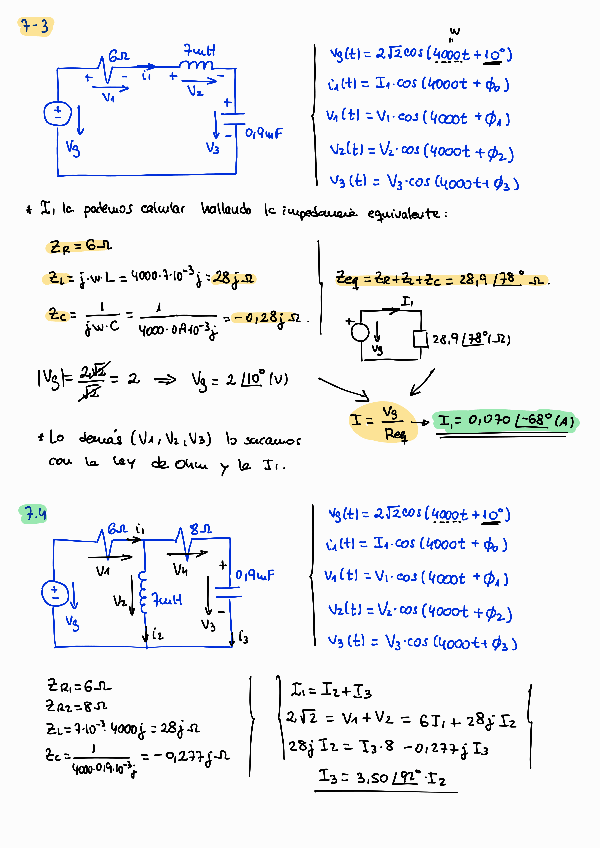 7-3
W
"
6Ω
7mH
+ - i₁ + -
V1
V2
+
-
Vg
V3
+
-
0,9mF
Vg(t) = 2√2 cos(4000t + 10°)
i1(t) = I1·cos(4000t + ϕ0)
V1(t) = V1·cos(4000t + ϕ1)
V2(t) = V2·cos(4000t + ϕ2)
V3(t) = V3·cos(4000t + ϕ3)
* I1 la podemos calcular hallando la impedancia equivalente:
ZR = 6Ω
ZL = j·w·L = 4000·7·10⁻³j = 28jΩ
Zc = 1/(jw·C) = 1/(4000·0,9·10⁻³j) = -0,28jΩ.
Zeq = ZR+ZL+Zc = 28,9 /78° Ω.
I1
+
Vg
28,9 /78° (Ω)
|Vg| = 2√2/√2 = 2 ⇒ Vg = 2 /10° (V)
I = Vg/Req → I1 = 0,070 /-68° (A)
* Lo demás (V1, V2, V3) lo sacamos
con la Ley de Ohm y la I1.
7.4
6Ω i1 8Ω
V1 V4
+
-
Vg
V2
7mH
V3
+
-
0,9mF
i2
i3
Vg(t) = 2√2 cos(4000t + 10°)
i1(t) = I1·cos(4000t + ϕ0)
V1(t) = V1·cos(4000t + ϕ1)
V2(t) = V2·cos(4000t + ϕ2)
V3(t) = V3·cos(4000t + ϕ3)
ZR1 = 6Ω
ZR2 = 8Ω
ZL = 7·10⁻³·4000j = 28jΩ
Zc = 1/(4000·0,9·10⁻³j) = -0,277jΩ
I1 = I2 + I3
2√2 = V1 + V2 = 6I1 + 28j I2
28j I2 = I3·8 - 0,277j I3
I3 = 3,50 /92° · I2